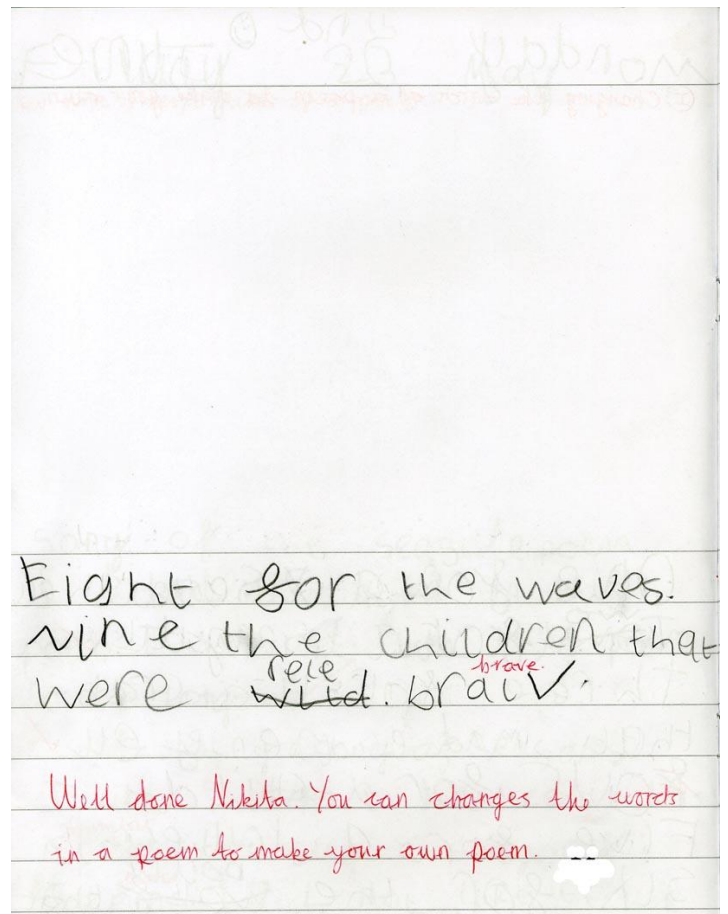 Eight for the waves.
Nine the children that
rele brave.
were wild. braiv.
Well done Nikita. You can changes the words
in a poem to make your own poem.